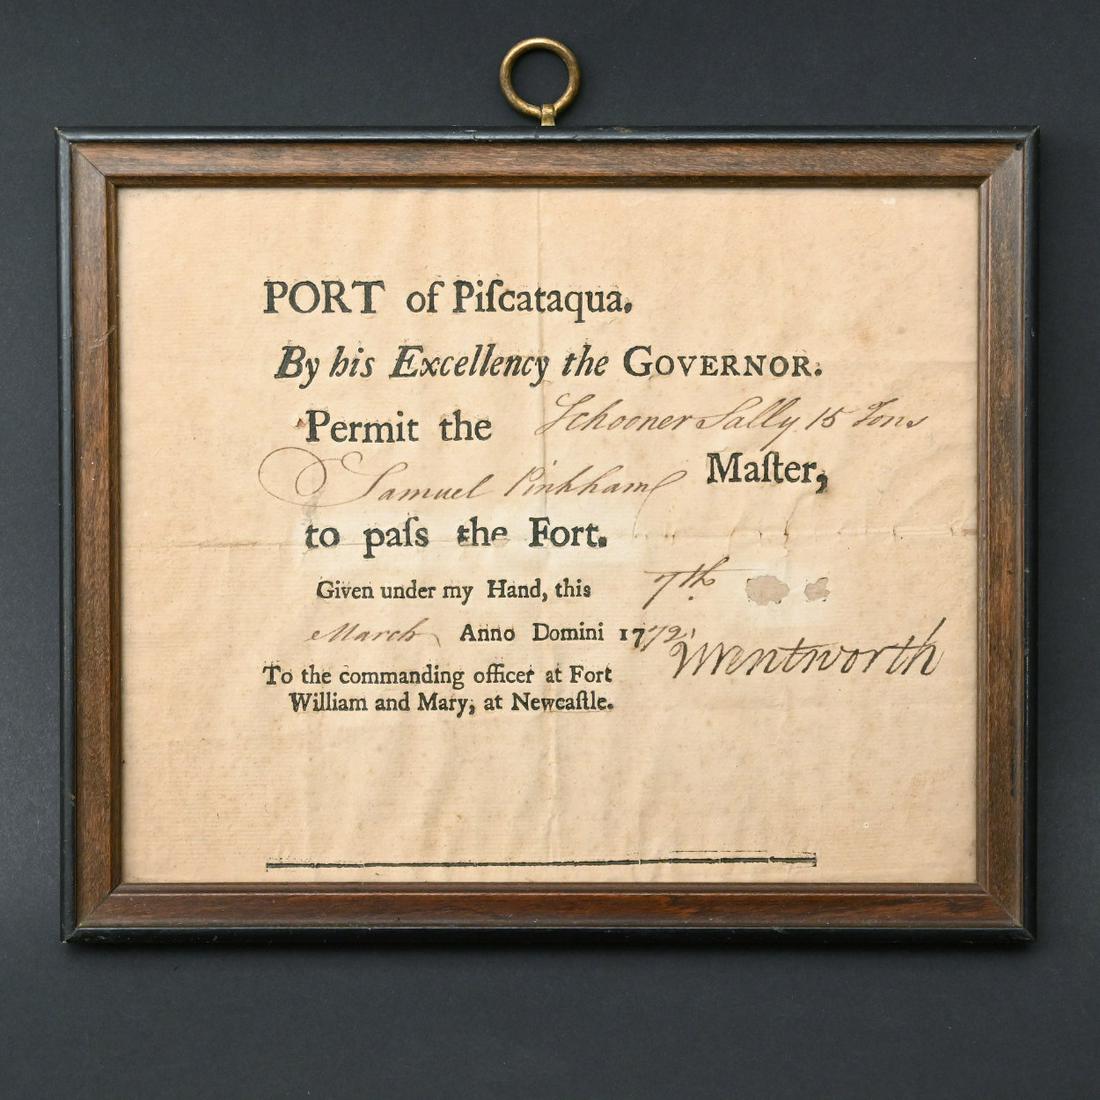 PORT of Piſcataqua.
By his Excellency the GOVERNOR.
Permit the Schooner Sally 15 Tons
Samuel Pinkham Maſter,
to paſs the Fort.
Given under my Hand, this 7th
March Anno Domini 1772
Wentworth
To the commanding officer at Fort
William and Mary, at Newcaſtle.